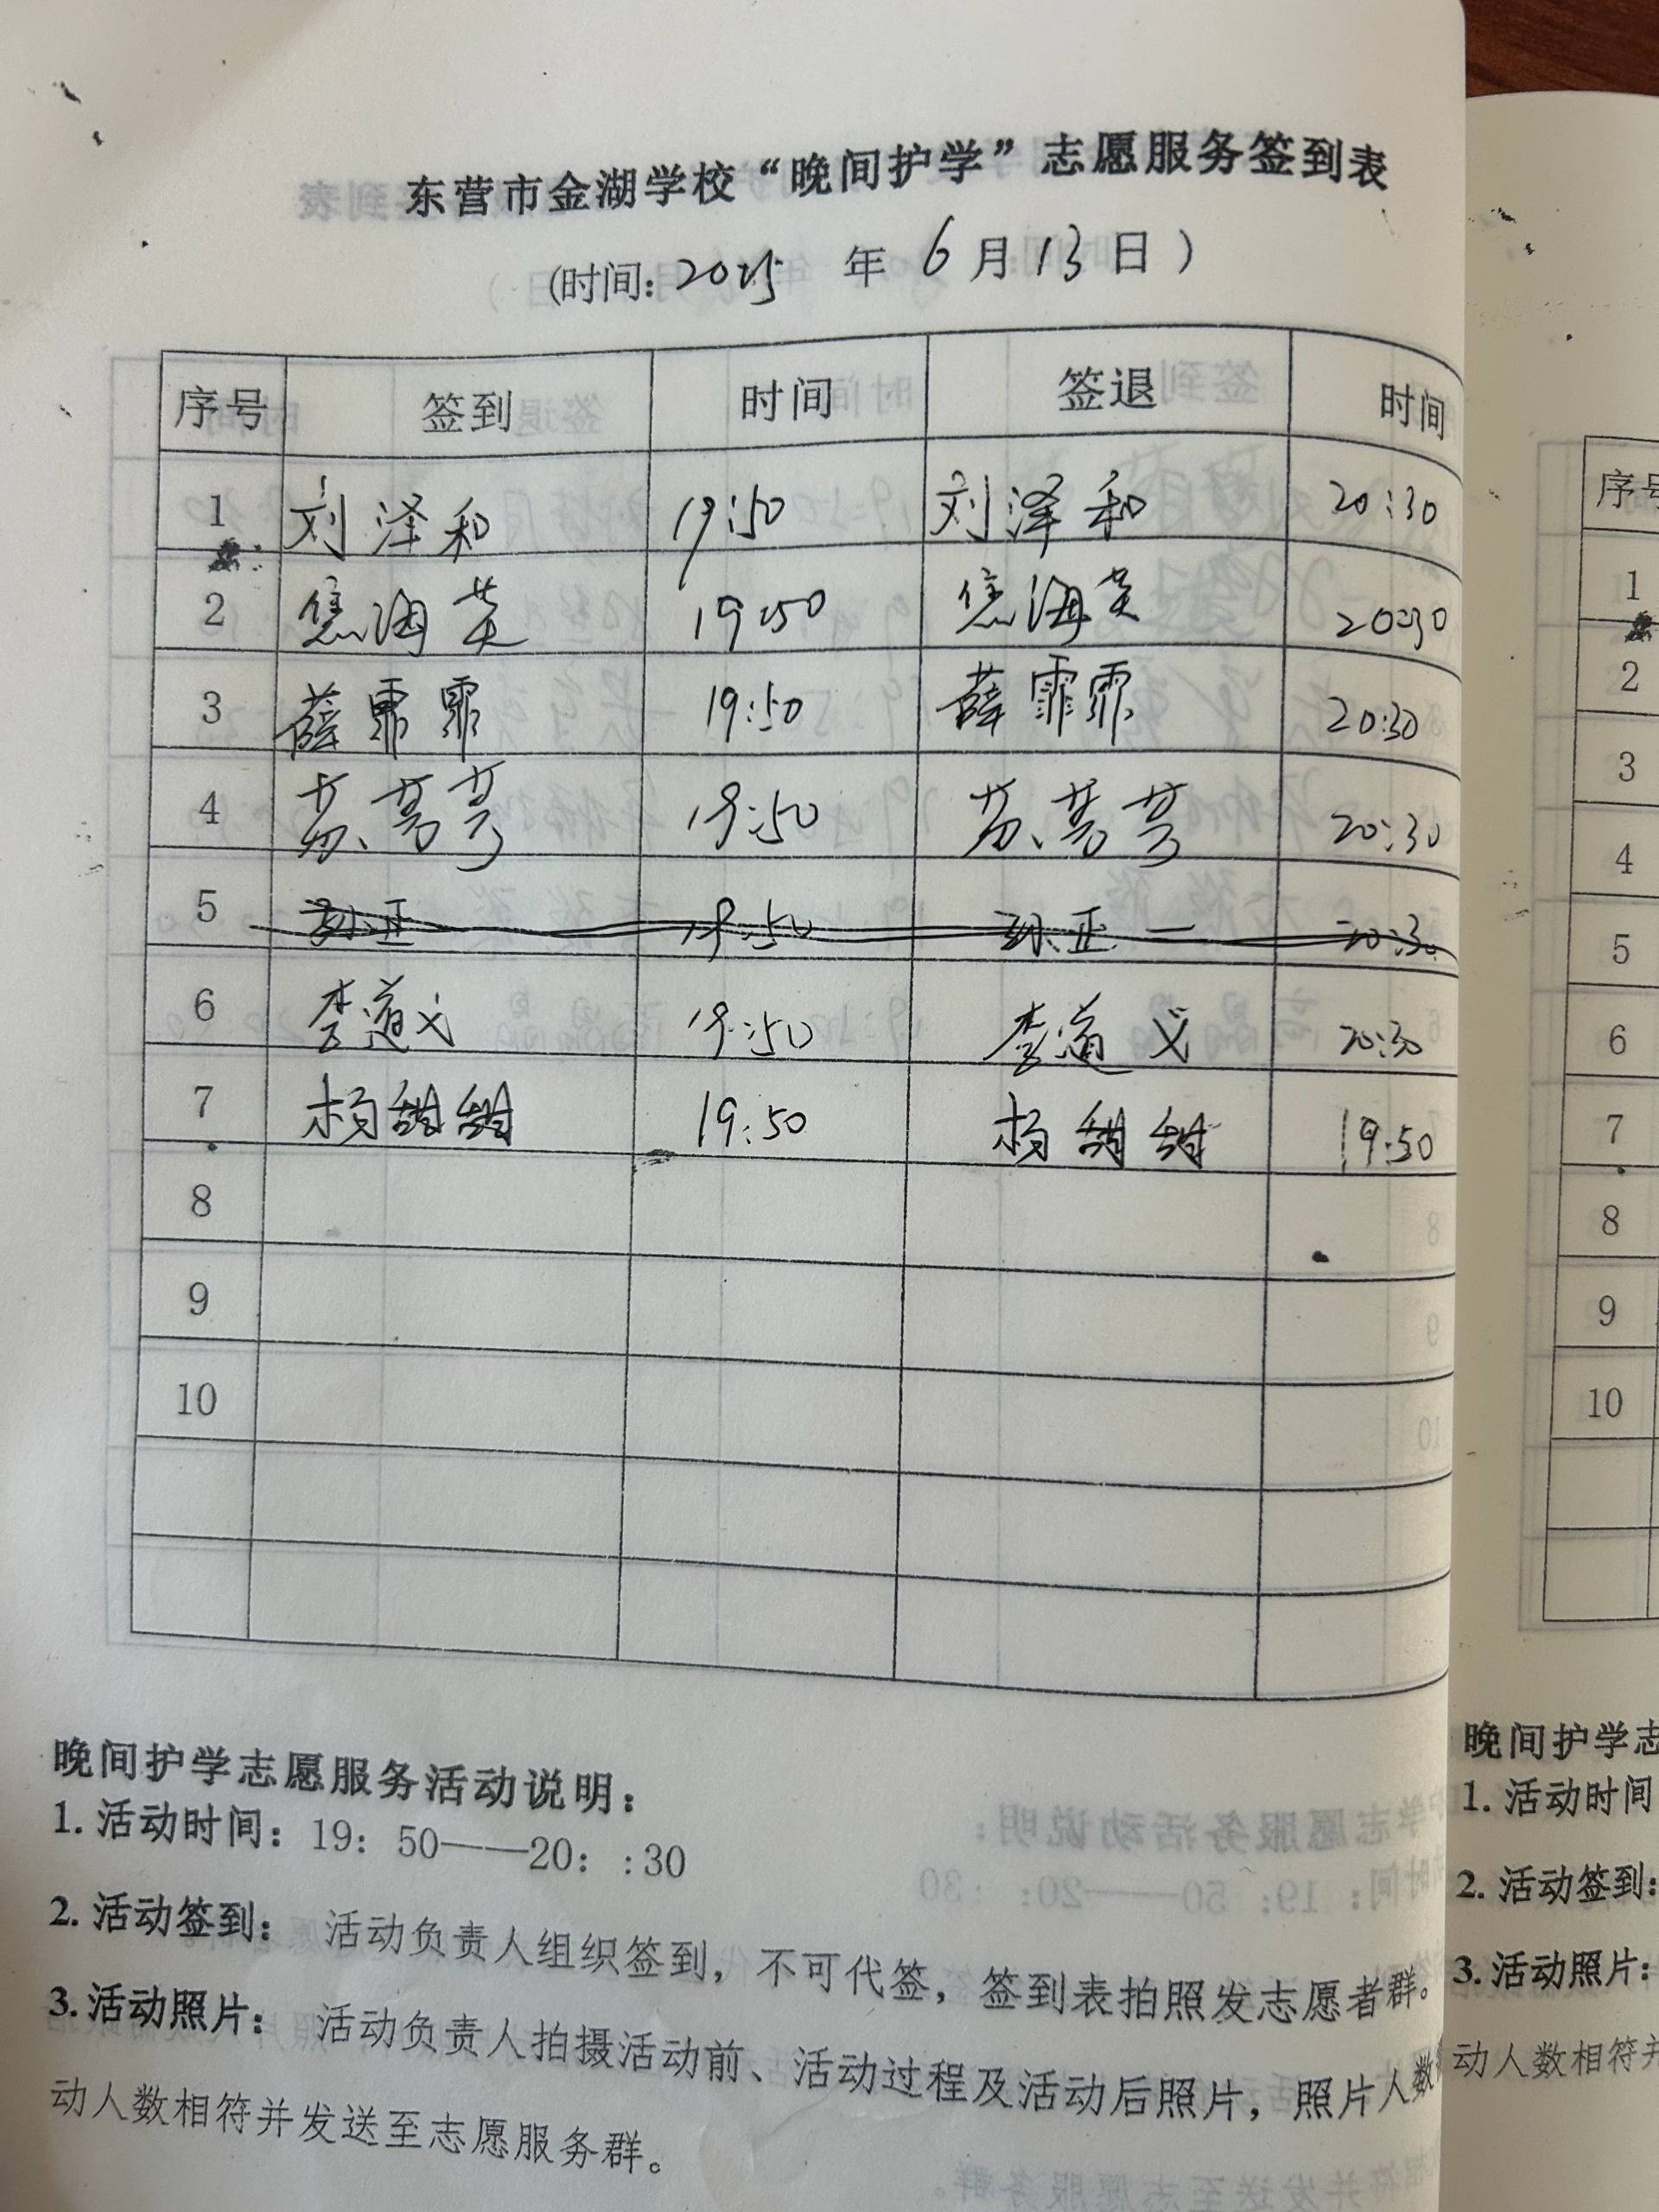 东营市金湖学校“晚间护学”志愿服务签到表
(时间: 2025 年 6 月 13 日)
序号 签到 时间 签退 时间
1 刘泽和 19:50 刘泽和 20:30
2 焦海英 19:50 焦海英 20:30
3 薛霏霏 19:50 薛霏霏 20:30
4 苏芳芳 19:50 苏芳芳 20:30
5 孙亚 19:50 孙亚 20:30
6 李道义 19:50 李道义 20:30
7 杨甜甜 19:50 杨甜甜 19:50
8
9
10
晚间护学志愿服务活动说明:
1. 活动时间: 19: 50——20: :30
2. 活动签到: 活动负责人组织签到，不可代签，签到表拍照发志愿者群。
3. 活动照片: 活动负责人拍摄活动前、活动过程及活动后照片，照片人数
动人数相符并发送至志愿服务群。
序号
1
2
3
4
5
6
7
8
9
10
晚间护学志
1. 活动时间
2. 活动签到:
3. 活动照片:
动人数相符并